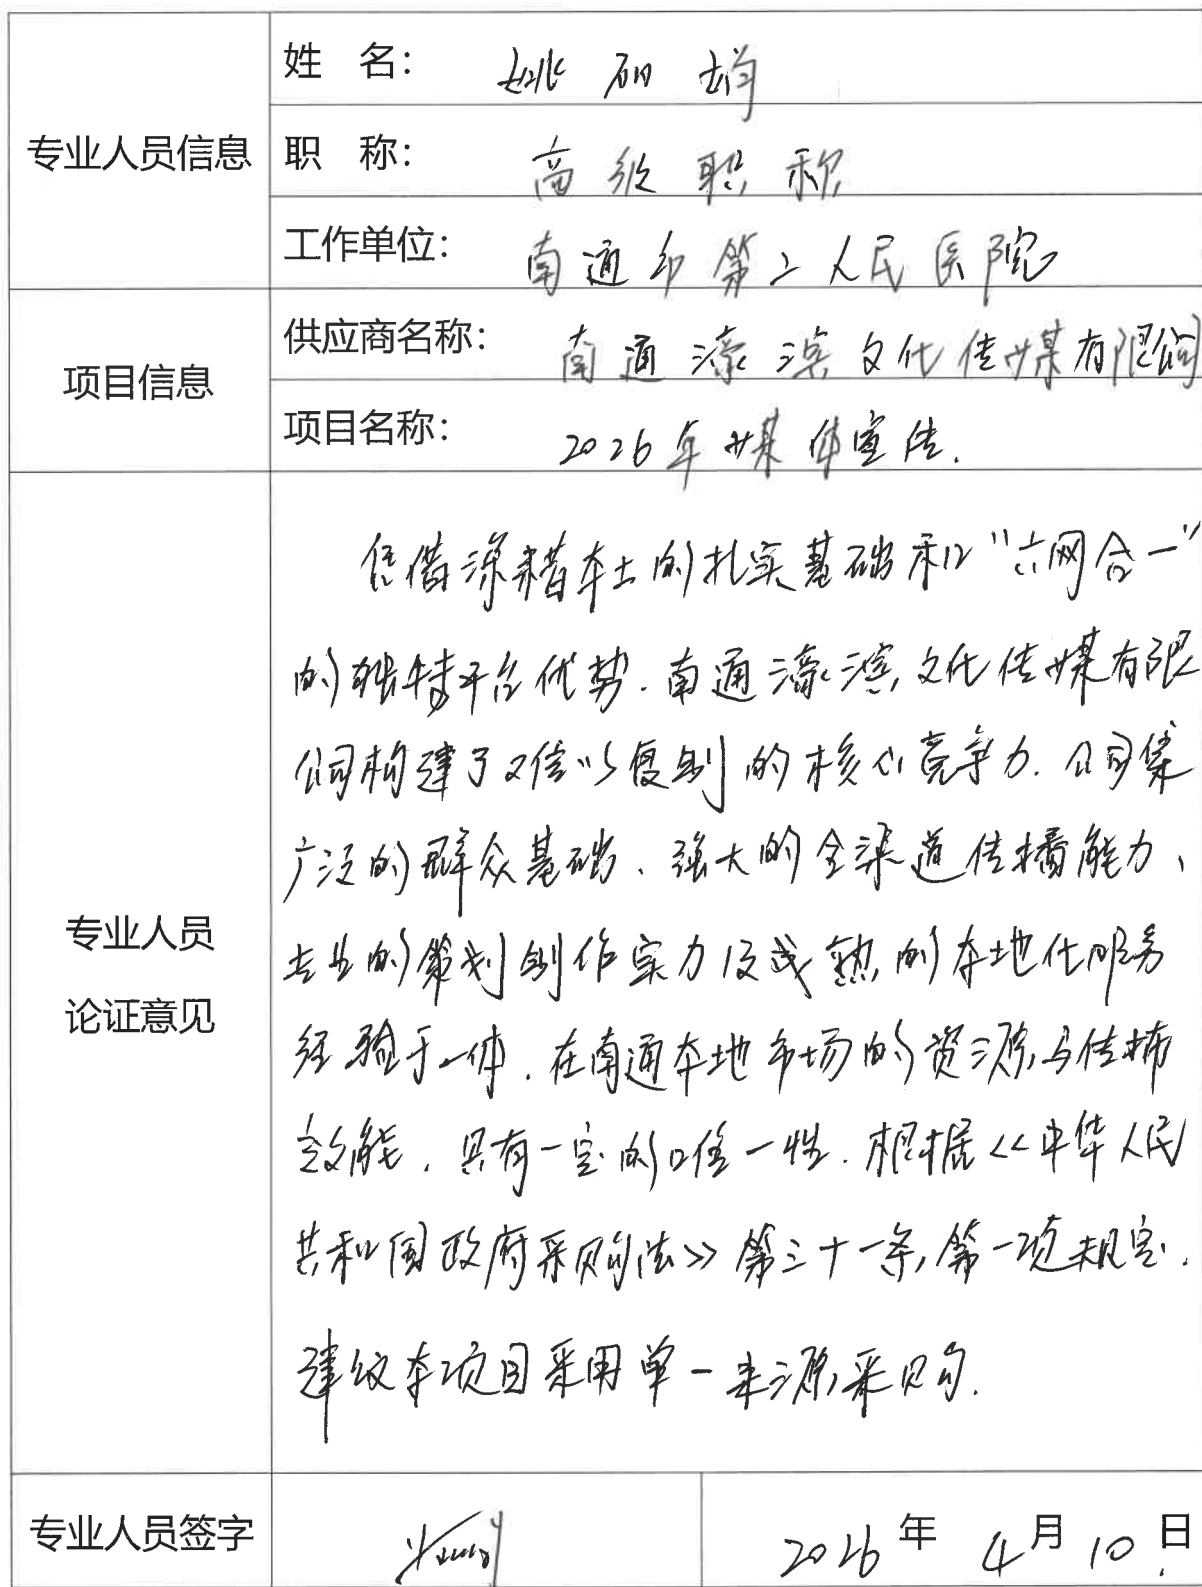 专业人员信息
姓 名：姚
职 称：高级职称
工作单位：南通市第二人民医院
项目信息
供应商名称：南通濠滨文化传媒有限公司
项目名称：2026年媒体宣传.
专业人员
论证意见
凭借深耕本土的扎实基础和"六网合一"
的独特平台优势.南通濠滨文化传媒有限
公司构建了难以复制的核心竞争力.公司集
广泛的群众基础、强大的全渠道传播能力、
专业的策划创作实力及成熟的本地化服务
经验于一体.在南通本地市场的资源与传播
效能.具有一定的唯一性.根据<<中华人民
共和国政府采购法>>第三十一条,第一项规定.
建议本项目采用单一来源采购.
专业人员签字
2026年4月10日